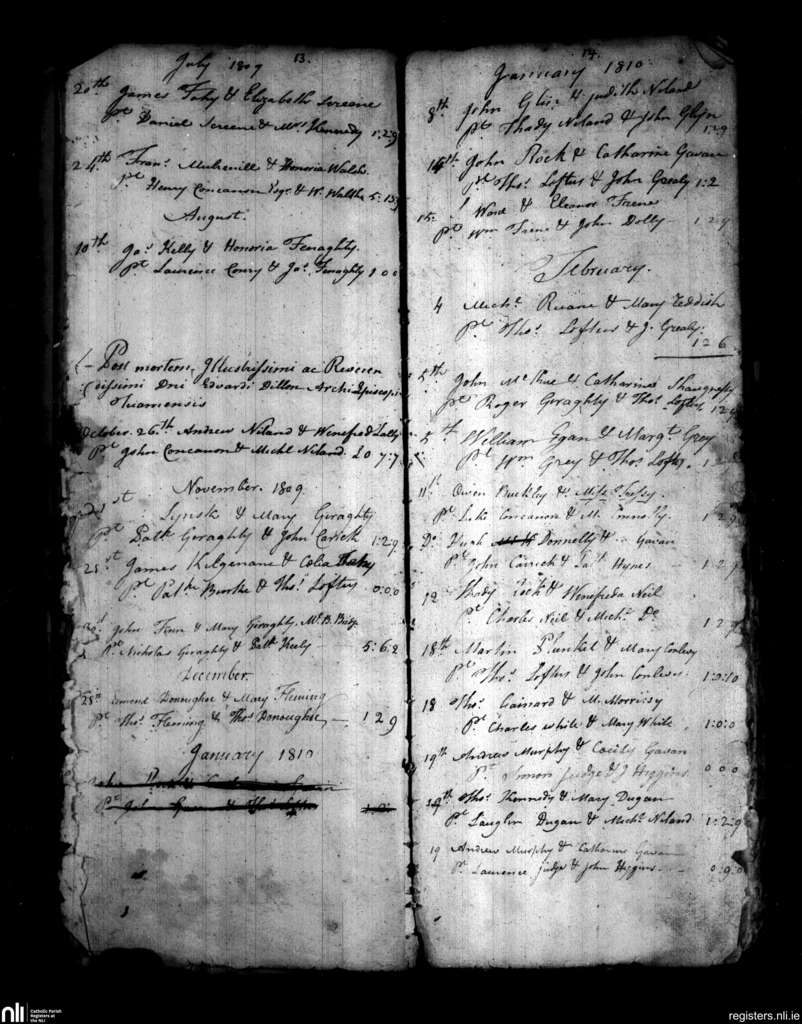 13.
July 1809
20th James Fahy & Elizabeth Screene
Pt Daniel Screene & Mrs Kennedy 1:2:9
24th Frans. Mulhevill & Honoria Walsh
Pt Henry Concanon Esqr. & W. Walsh 5:13
August.
10th Jas. Kelly & Honoria Fenaghty.
Pt Laurence Conry & Jas. Fenaghty 1 0 0
Post mortem Illustrissimi ac Reveren
dissimi Dni Edwardi Dillon Archi Episcopi
Tuamensis
October. 26th Andrew Niland & Winefred Lally
Pt John Concanon & Michl Niland. £0 7:7
November. 1809
Lynsk & Mary Geraghty
Pt Patk Geraghty & John Carick 1:2:9
21st James Kilgenane & Celia Fahy
Pt Patk Burke & Thos. Loftus 0:0:0
John & Mary Geraghty, Mt. B.
Pt Nicholas Geraghty & Patk Healy 5:6:2
December.
28th Edmond Donoughoe & Mary Fleming
Pt Thos. Fleming & Thos. Donoughoe 1 2 9
January 1810
14.
January 1810
8th John Glin & Judith Noland
Pt Thady Noland & John Glyn 1:2:9
14th John Rock & Catharine Gavan
Pt Thos. Loftus & John Grealy 1:2
15. Ward & Eleanor Frene
Pt Wm Frene & John Dolly 1 2 9
February.
4 Michl. Ruane & Mary Reddish
Pt Thos. Loftus & J. Grealy.
1 2 6
5th John Mc Hue & Catharine Shaugnessy
Pt Roger Geraghty & Thos. Loftus 1 2 9
5th William Egan & Margt. Grey
Pt Wm Grey & Thos. Loftus. 1 2
11th Owen Buckley & Miss
Pt Luke Concanon & M. 1 2 9
Do. Hugh Donnelly & Gavan
Pt John Carick & Patt Hynes 1 2 9
12 Thady Rock & Winefreda Neil
Pt Charles Neil & Michl. Do. 1 2 9
18th Martin Plunket & Mary Conlevy
Pt Thos. Loftus & John Conlevy 1:0:10
18 Thos. Gainard & M. Morrisy
Pt Charles White & Mary White 1:0:0
19th Andrew Murphy & Cecily Gavan
Pt Simon Judge & J Higgins 0 0 0
19th Thos. Kennedy & Mary Dugan
Pt Laughlin Dugan & Michl. Noland 1:2:9
19 Andrew Murphy & Catharine Gavan
Pt Laurence Judge & John Higgins 0:9:0
nli
Catholic Parish
Registers at
the NLI
registers.nli.ie